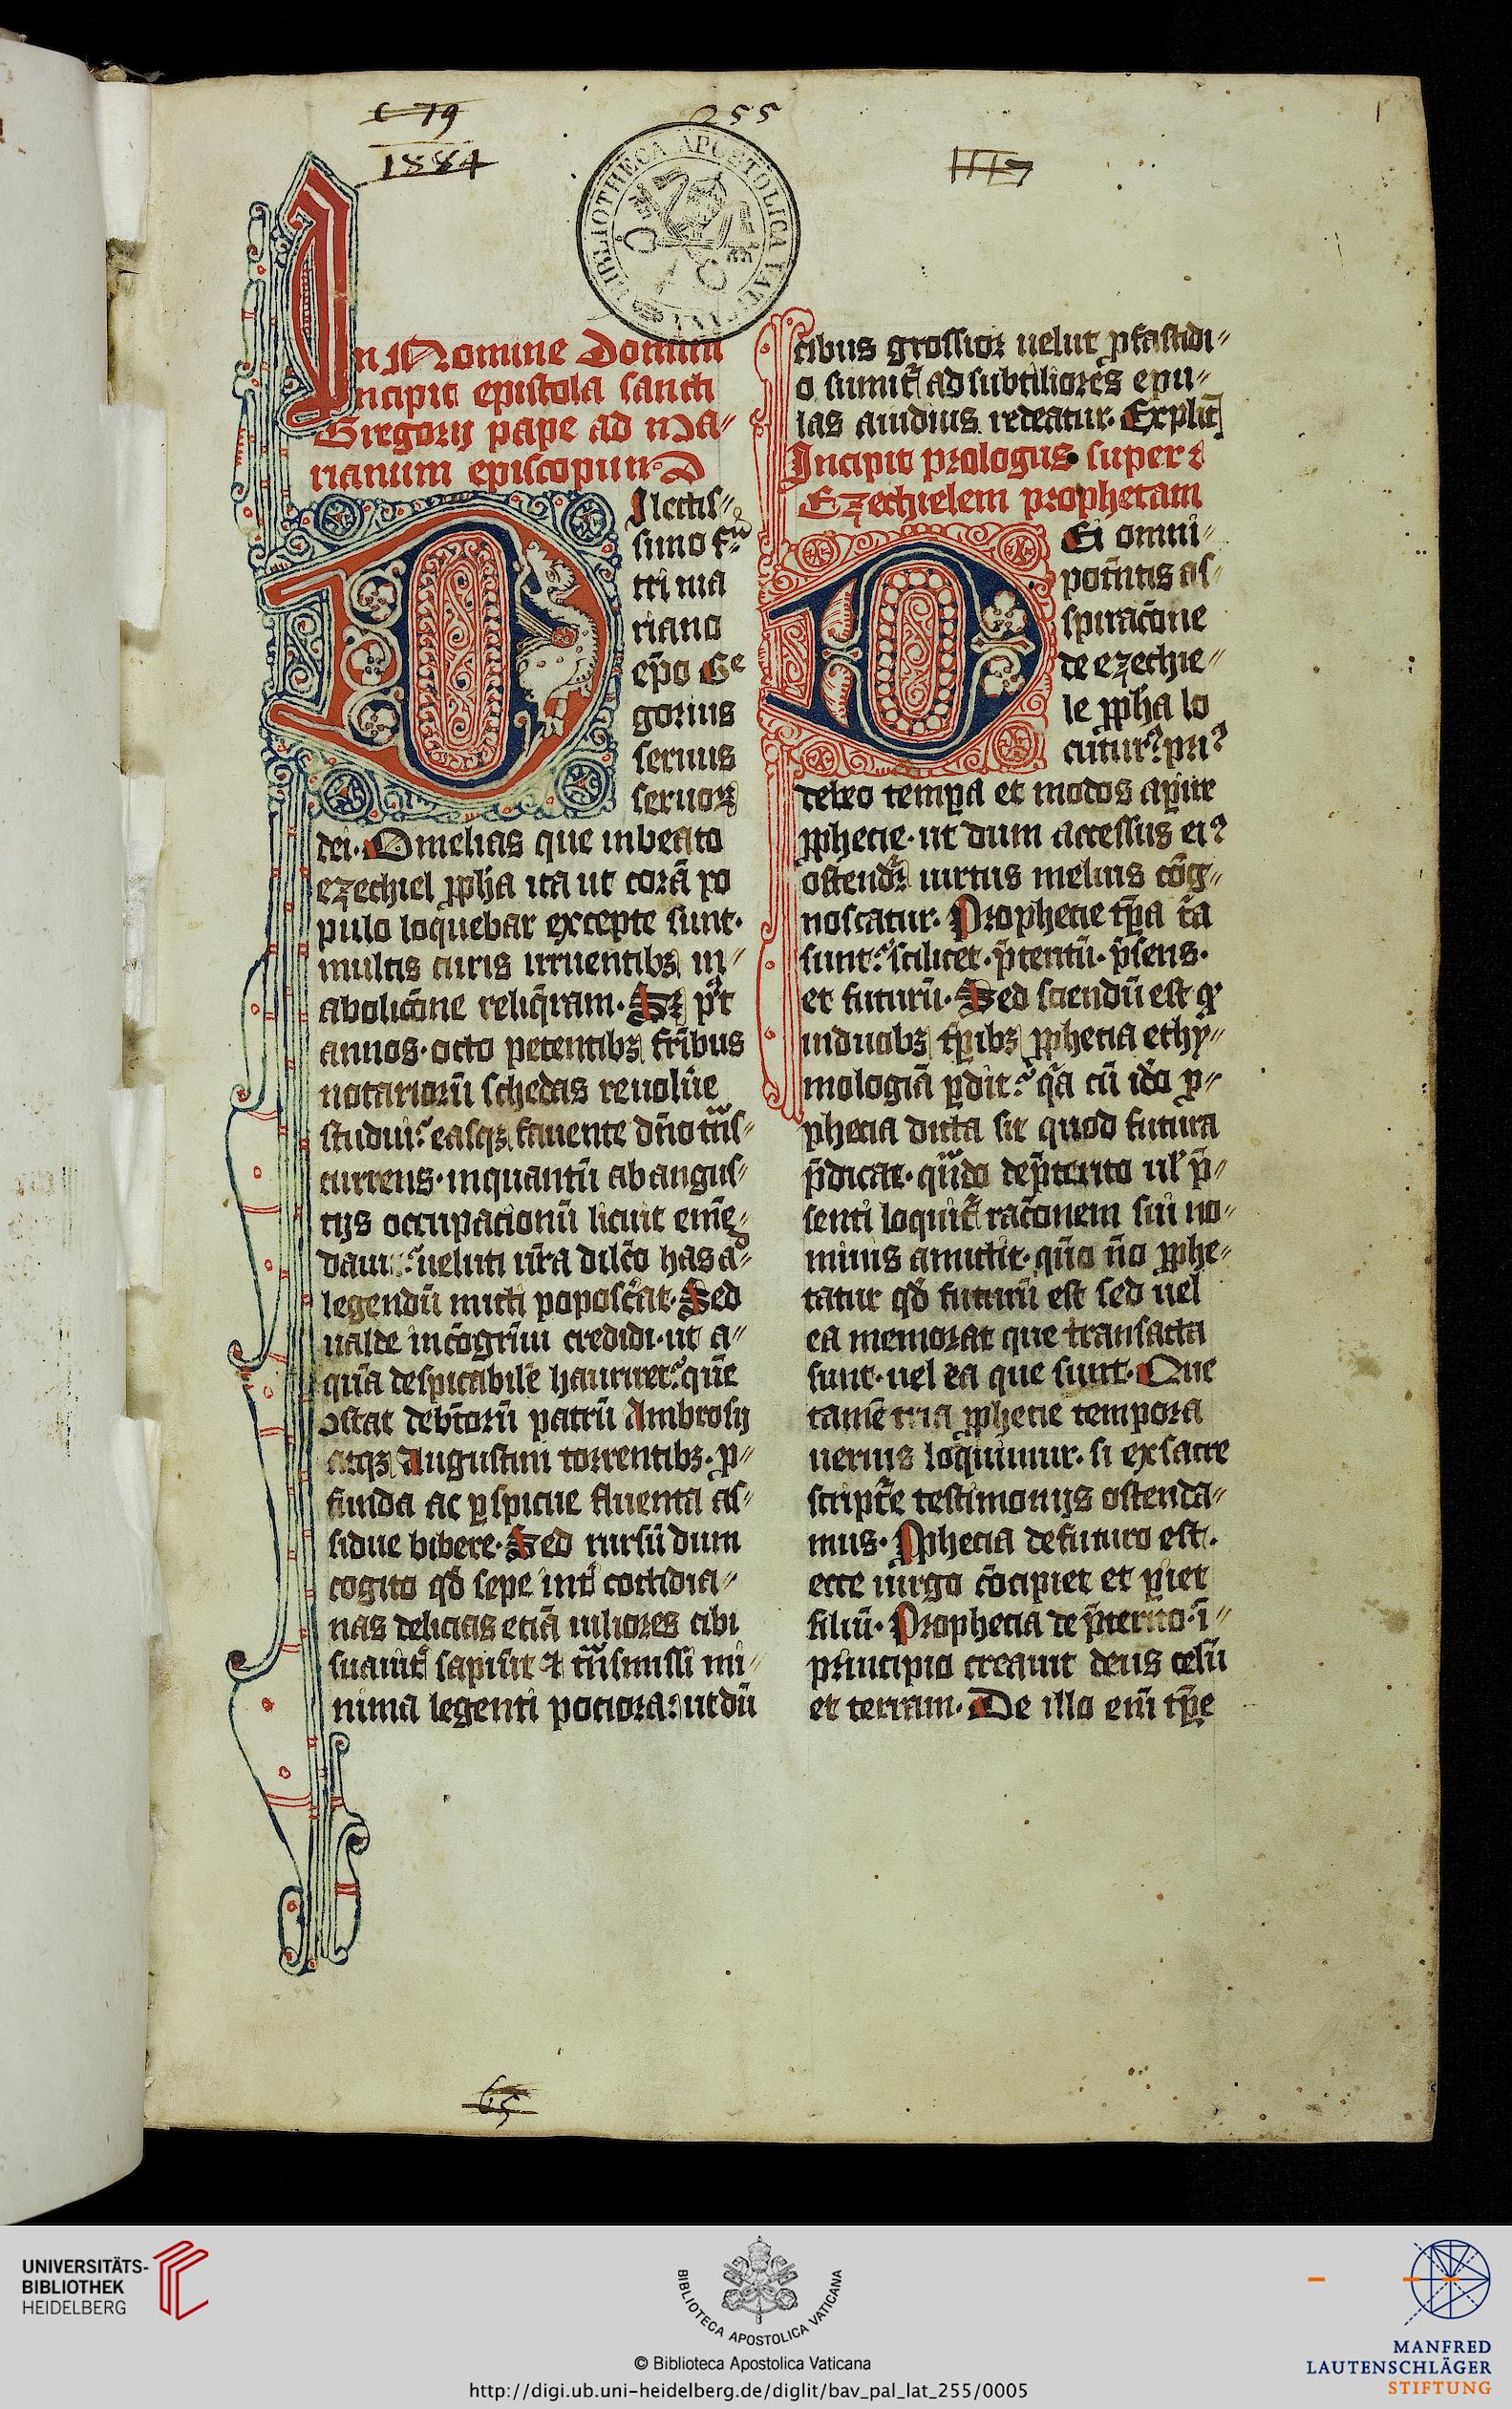 c 79
1884
255
1117
1
BIBLIOTHECA APOSTOLICA VATICANA
In Nomine Domini
Incipit epistola sancti
Gregorij pape ad Ma⸗
rianum episcopum D
Ilectis⸗
simo fr̄
tri ma
riano
ep̄o Ge
gorius
seruus
seruoꝝ
dei· Omelias que in beato
ezechiel ꝓph̄a ita ut corā po
pulo loquebar excepte sunt·
multis curis irruentibꝫ in⸗
abolic̄one reliq̄ram· Sꝫ pꝰt
annos· octo petentibꝫ fr̄ibus
notariorū schedas reuolūe
studui: easqꝫ fauente dn̄o trās⸗
currens· inquantū ab angus⸗
tijs occupacionū licuit emē⸗
daui: ueluti ur̄a dilc̄o has a⸗
legendū micti poposc̄at· Sed
ualde incōgrūu credidi· ut a⸗
quā despicabilē hauriret: quē
ꝯstat deb̄torū patrū Ambrosij
atqꝫ Augustini torrentibꝫ· ꝓ⸗
funda ac ꝑspicue fluenta as⸗
sidue bibere· Sed rursū dum
cogito qd̄ sepe int̄ cottidia⸗
nas delicias eciā uiliores cibi
suauit̄ sapiūt ⁊ trāsmissi mi⸗
nima legenti pociora: ut dū
cibus grossior uelut ꝓ fastidi⸗
o sumit̄ ad subtiliores epu⸗
las auidius redeatur· Explic̄
Incipit prologus super
Ezechielem prophetam
Ei omni⸗
potētis as⸗
spirac̄one
de ezechie⸗
le ꝓph̄a lo
cutur̄ꝰ pri̓
debeo tempa et modos aꝑire
ꝓphecie· ut dum accessus eiꝰ
ostendit̄ uirtus melius cōg⸗
noscatur· Prophecie tꝑa t̄a
sunt: scilicet· p̄teritū· p̄sens·
et futurū· Sed sciendū est qꝫ
induobꝫ tꝑibꝫ ꝓphecia ethy⸗
mologiā ꝑdit: q̄a cū id̄o ꝓ⸗
phecia dicta sit quod futura
p̄dicat· quādo de p̄terito ul̄ p̄⸗
senti loquit̄ rac̄onem sui no⸗
minis amittit· qn̄o n̄o ꝓphe⸗
tatur qd̄ futurū est sed uel
ea memorat que transacta
sunt· uel ea que sunt· Que
tamē tria ꝓphecie tempora
uerius loquimur· si ex sacre
script̄e testimonijs ostenda⸗
mus· Ꝓphecia de futuro est·
ecce uirgo c̄ocipiet et ꝑiet
filiū· Prophecia de p̄terito· ī⸗
principio creauit deus celū
et terram· De illo enī tꝑe
65
UNIVERSITÄTS-
BIBLIOTHEK
HEIDELBERG
BIBLIOTECA APOSTOLICA VATICANA
© Biblioteca Apostolica Vaticana
http://digi.ub.uni-heidelberg.de/diglit/bav_pal_lat_255/0005
MANFRED
LAUTENSCHLÄGER
STIFTUNG